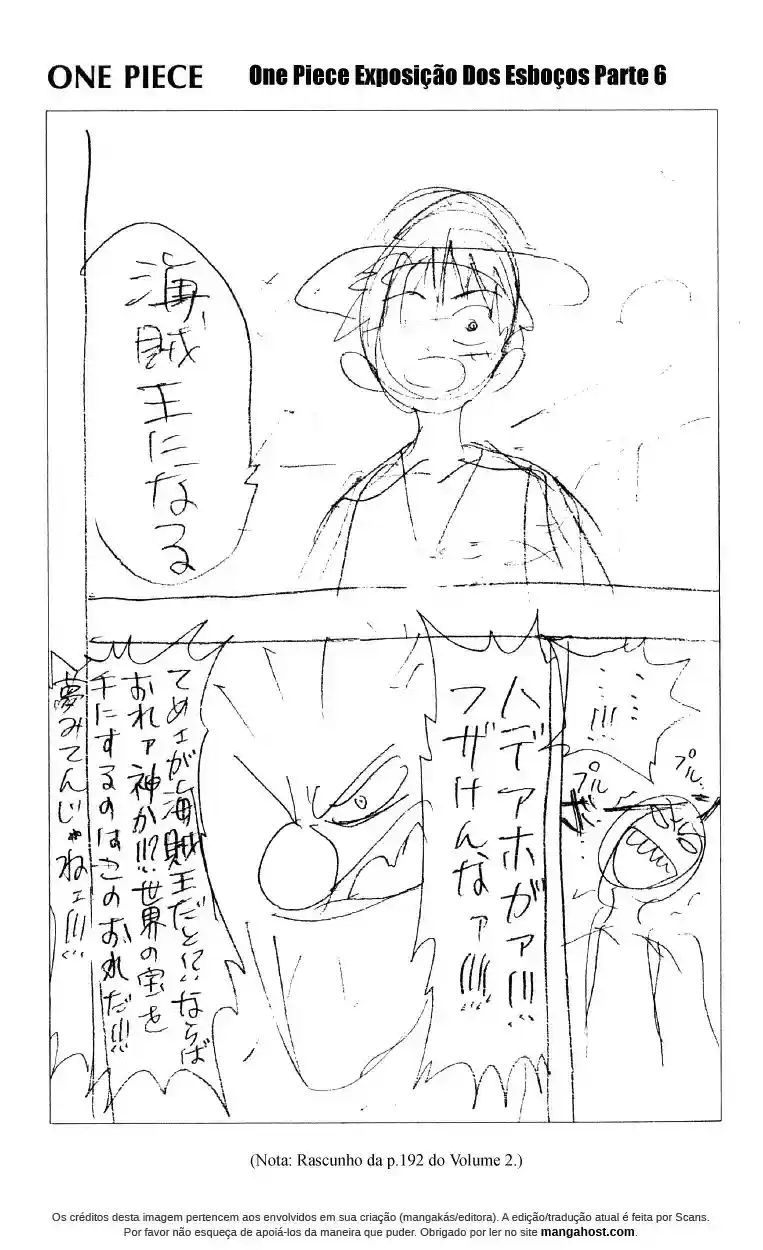 ONE PIECE One Piece Exposição Dos Esboços Parte 6
海賊
王に
なる
‥‥!!!
プル‥
プル‥
ハデアホがァ!!!
フザけんなァ!!!!
てめェが海賊王だと!?ならば
おれァ神か!!!?世界の宝を
手にするのはこのおれだ!!!!
夢みてんじゃねェ!!!
(Nota: Rascunho da p.192 do Volume 2.)
Os créditos desta imagem pertencem aos envolvidos em sua criação (mangakás/editora). A edição/tradução atual é feita por Scans.
Por favor não esqueça de apoiá-los da maneira que puder. Obrigado por ler no site mangahost.com.